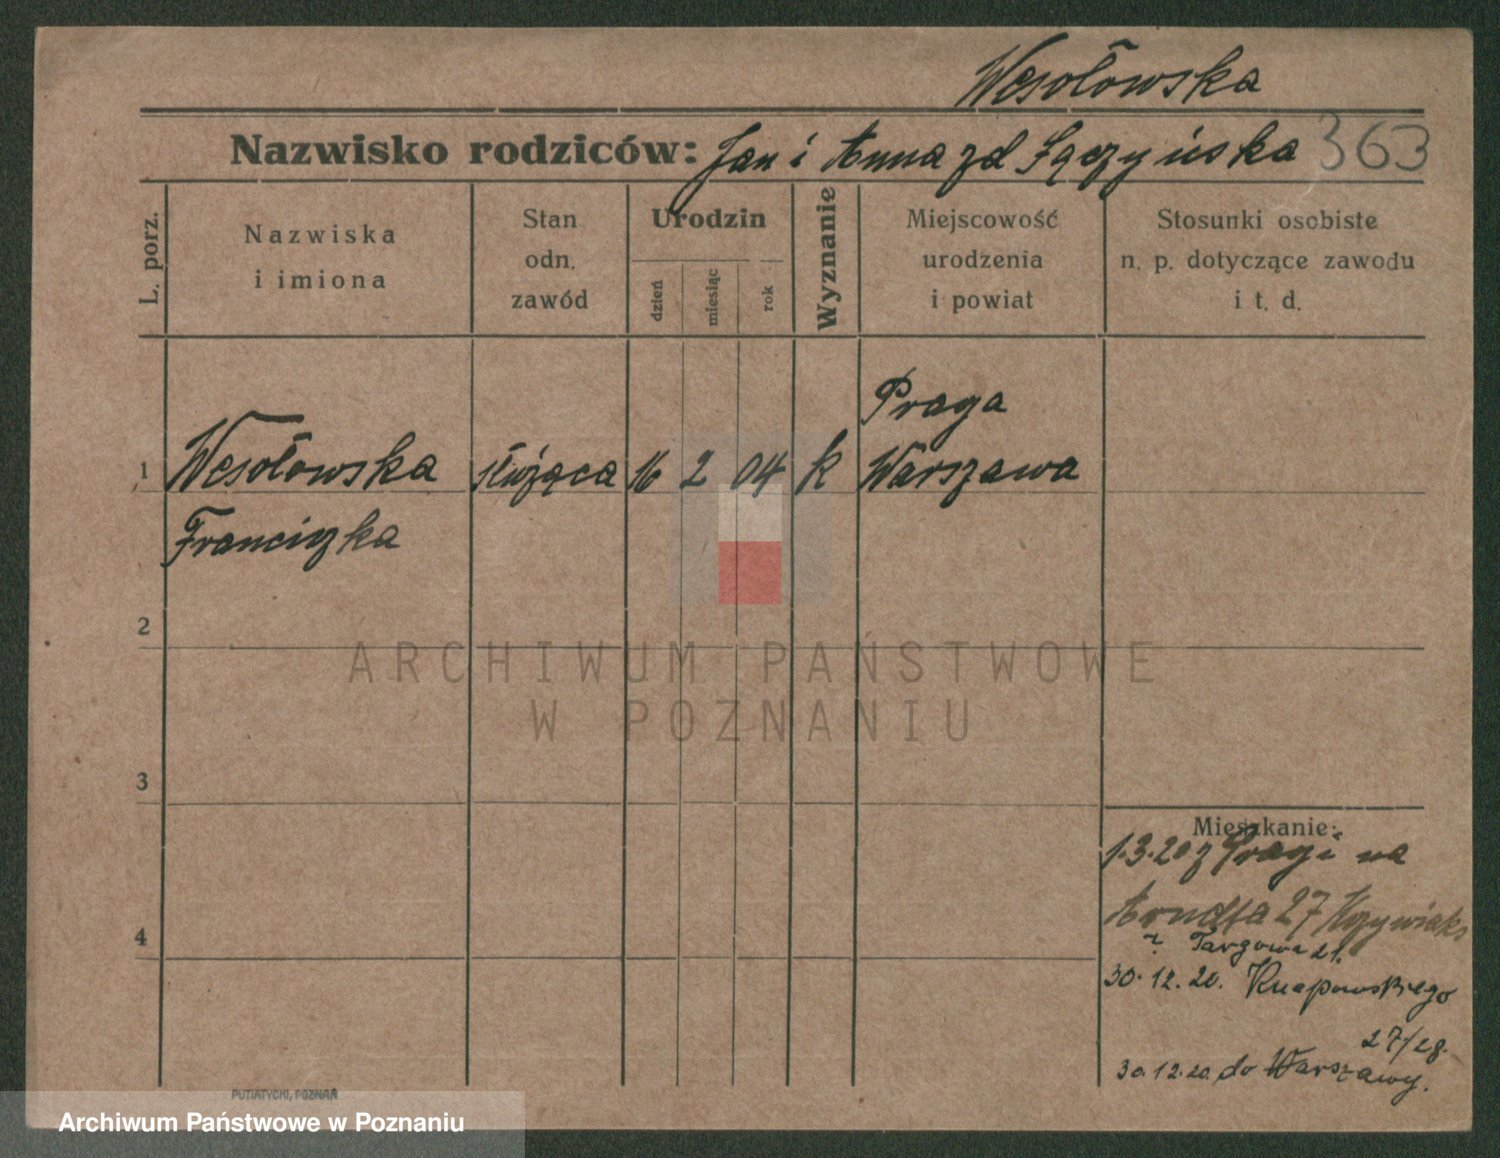 Wesołowska
Nazwisko rodziców: Jan i Anna zd Łączyńska 363
L. porz.
Nazwiska
i imiona
Stan
odn.
zawód
Urodzin
dzień
miesiąc
rok
Wyznanie
Miejscowość
urodzenia
i powiat
Stosunki osobiste
n. p. dotyczące zawodu
i t. d.
Praga
1 Wesołowska służąca 16 2 04 k Warszawa
Franciszka
2
ARCHIWUM PAŃSTWOWE
W POZNANIU
3
Mieszkanie:
1.3.20 z Pragi na
4
27
Targowa 21.
30.12.20. Knapowskiego
27/28.
30.12.20. do Warszawy.
PUTIATYCKI, POZNAŃ
Archiwum Państwowe w Poznaniu